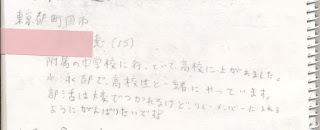 東京都町田市
恵(15)
附属の中学校に行っていて高校に上がれました。
水泳部で、高校生と一緒にやっています。
部活は大変でつかれるけど、リレーメンバーに入れる
ようにがんばりたいです